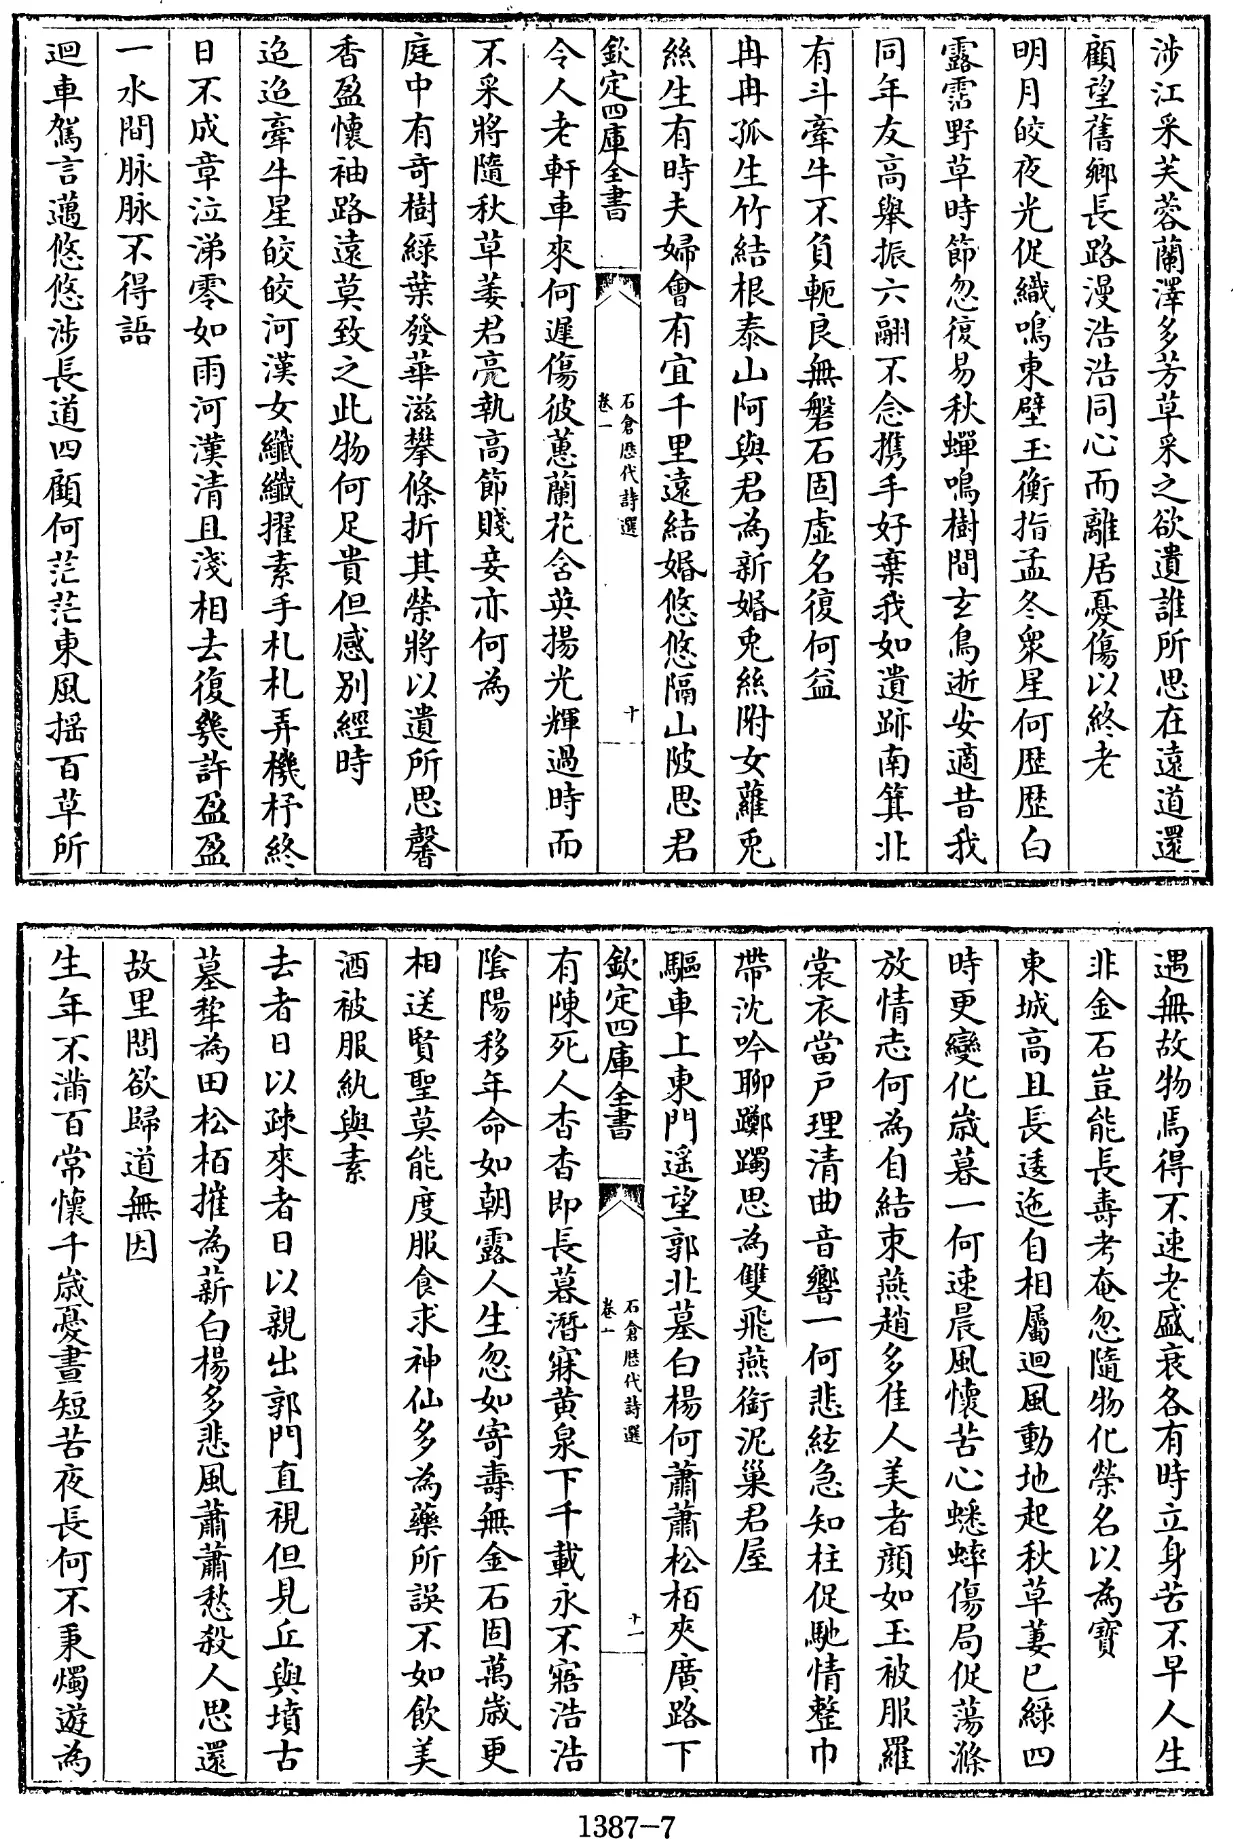 涉江采芙蓉蘭澤多芳草采之欲遺誰所思在遠道還
顧望舊鄉長路漫浩浩同心而離居憂傷以終老
明月皎夜光促織鳴東壁玉衡指孟冬衆星何歴歴白
露霑野草時節忽復易秋蟬鳴樹間玄鳥逝安適昔我
同年友高舉振六翮不念携手好棄我如遺跡南箕北
有斗牽牛不負軛良無磐石固虚名復何益
冉冉孤生竹結根泰山阿與君為新婚兎絲附女蘿兎
絲生有時夫婦會有宜千里遠結婚悠悠隔山陂思君
欽定四庫全書
石倉歴代詩選
卷一
十
令人老軒車來何遲傷彼蕙蘭花含英揚光輝過時而
不采將隨秋草萎君亮執高節賤妾亦何為
庭中有奇樹緑葉發華滋攀條折其榮將以遺所思馨
香盈懷袖路遠莫致之此物何足貴但感别經時
迢迢牽牛星皎皎河漢女纎纎擢素手札札弄機杼終
日不成章泣涕零如雨河漢清且淺相去復幾許盈盈
一水間脉脉不得語
迴車駕言邁悠悠涉長道四顧何茫茫東風揺百草所
遇無故物焉得不速老盛衰各有時立身苦不早人生
非金石豈能長壽考奄忽隨物化榮名以為寶
東城高且長逶迤自相屬迴風動地起秋草萋已緑四
時更變化歳暮一何速晨風懷苦心蟋蟀傷局促蕩滌
放情志何為自結束燕趙多佳人美者顔如玉被服羅
裳衣當戸理清曲音響一何悲絃急知柱促馳情整巾
帶沈吟聊躑躅思為雙飛燕銜泥巢君屋
驅車上東門遥望郭北墓白楊何蕭蕭松柏夾廣路下
欽定四庫全書
石倉歴代詩選
卷一
十一
有陳死人杳杳即長暮潛寐黄泉下千載永不寤浩浩
陰陽移年命如朝露人生忽如寄壽無金石固萬歳更
相送賢聖莫能度服食求神仙多為藥所誤不如飲美
酒被服紈與素
去者日以疎來者日以親出郭門直視但見丘與墳古
墓犂為田松柏摧為薪白楊多悲風蕭蕭愁殺人思還
故里閭欲歸道無因
生年不滿百常懷千歳憂晝短苦夜長何不秉燭遊為
1387-7